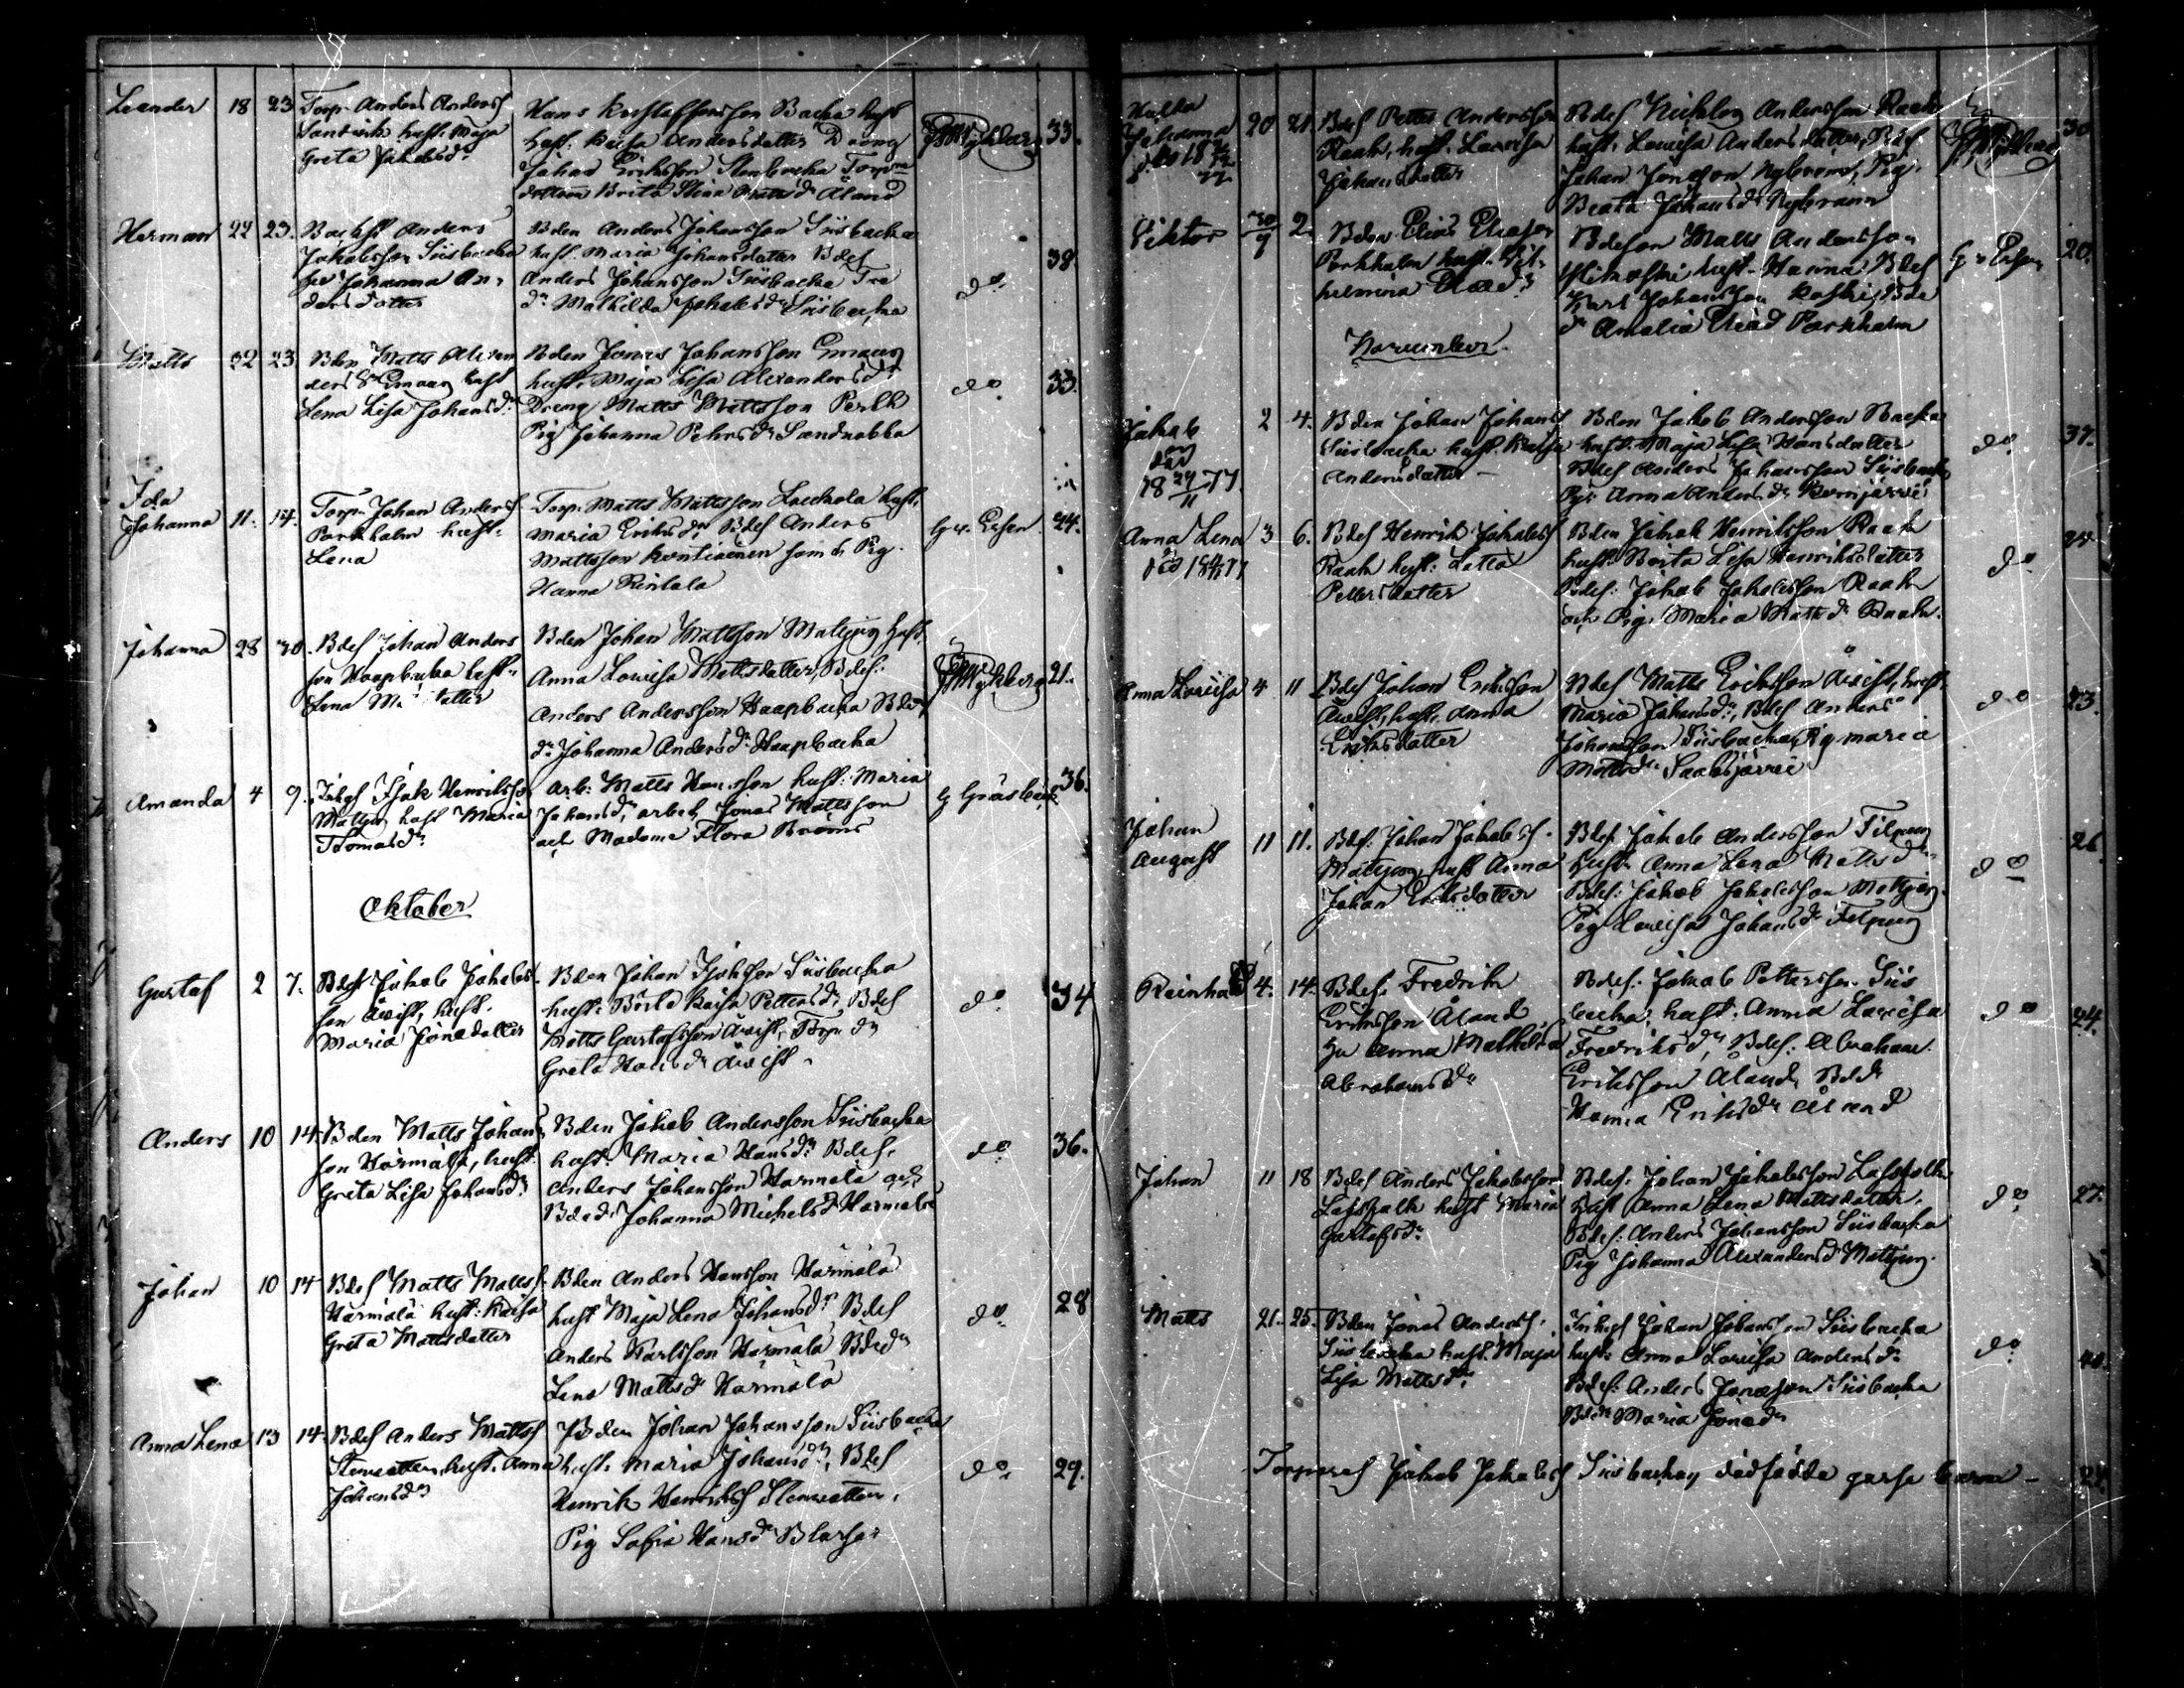 Leander 18 23 Torp. Anders Anders
Sandvik hust. Maja
Greta Jakobsdr
Hans Gustafsson Backa hust
hust. Kaisa Andersdatter Dräng
Johan Eriksson Stenbacka Torp
dottern Brita Stina Matts dr Åland
33.
Herman 22 23. Backst Anders
Jakobsson Siisbacka
hu Johanna An-
ders dotter
Bden Anders Johansson Siisbacka
hust. Maria Johansdatter Bdes
Anders Johansson Siisbacka
dr Mathilda Jakobs dr Siisbacka
do 38
Matts 22 23 Bden Matts Alexan
ders Emaus hust
Lena Lisa Johansdr
Bden Jonas Johansson Emaus
hust. Maja Lisa Alexandersdr
Dreng Matts Mattsson
Pig Johanna Pehrs dr Sandnabba
do 33.
Ida
Johanna 11. 14. Torp. Johan Anders
Porkholm hust.
Lena
Torp. Matts Mattsson hust.
Maria Eriks dr Bdes Anders
Mattsson Kontiainen Pig.
Hanna Rintala
24.
Johanna 28 30. Bdes Johan Anders
son Haapbacka hust.
Lena
Bden Johan Mattsson Mattjus hust.
Anna Lovisa Mattsdatter, Bdes.
Anders Andersson Haapbacka Bde
dr Johanna Anders dr Haapbacka
21.
Amanda 4 9. Inhys Isak Henriksson
Mattjus hust Maria
Thomasdr
Arb. Matts Hansson hust. Maria
Johansdr, arbet. Jonas Mattsson
och Madame Flora
G Gråsbäck 36.
Oktober
Gustaf 2 7. Bdes Jakob Jakobs
son Åvist, hust.
Maria Jonasdatter
Bden Johan Isaksson Siisbacka
hust. Brita Kaisa Petters dr Bdes
Matts Gustafsson Åvist, Torp dr
Greta Hans dr Åvist
do 34
Anders 10 14. Bden Matts Johans
son Härmälä, hust.
Greta Lisa Johansdr
Bden Jakob Andersson Siisbacka
hust. Maria Hansdr Bdes.
Anders Johansson Harmala och
Bdedr Johanna Michels dr Harmala
do 36.
Johan 10 14 Bdes Matts Matts
Härmälä hust. Kaisa
Greta Mattsdatter
Bden Anders Hansson Härmälä
hust Maja Lena Johansdr Bdes
Anders Karlsson Härmälä Bdedr
Lena Mattsdr Härmälä
do 28
Anna Lena 13 14. Bdes Anders Matts
hust. Anna
Johansdr
Bden Johan Johansson Siisbacka
hust. Maria Johansdr, Bdes
Henrik Henriks
Pig Sofia Hansdr
do 29.
Hulda
Johanna
20 21. Bdes Petter Andersson
Raak, hust. Lovisa
Johansdatter
Bdes Nicklas Andersson Raak
hust. Lovisa Andersdatter, Bdes
Johan Jonasson Nybrann, Pig.
Beata Johans dr Nybrann
30
Viktor 30/9 2. Bden Elias Eliasson
Porkholm hust. Vil-
helmina
Bdeson Matts Andersson
hust. Hanna Bdes
Karl Johansson Koski, Bde
dr Amalia Porkholm
20.
November.
Jakob
död
18 29/11 77
2 4. Bden Johan Johans
Siisbacka hust. Kaisa
Andersdatter
Bden Jakob Andersson Backa
hust. Maja Lisa Hansdatter
Bdes Anders Johansson Siisbacka
Pig. Anna Anders dr
do 37.
Anna Lena
3 6. Bdes Henrik Jakobs
Raak hust. Lotta
Pettersdatter
Bden Jakob Henriksson Raak
hust. Brita Lisa Henriksdatter
Bdes. Jakob Jakobsson Raak
och Pig. Maria Matts dr Raak.
do
Anna Lovisa 4 11 Bdes Johan Eriksson
Åvist, hust. Anna
Eriksdatter
Bdes Matts Eriksson Åvist, hust.
Maria Johansdr, Bdes Anders
Johansson Siisbacka, Pig Maria
Mattsdr Saaksjärvi
do 23.
Johan
August 11 11. Bdes. Johan Jakobs
Mattjus, hust Anna
Johan Eriksdatter
Bdes Jakob Andersson Filpus
hust. Anna Lena Matts dr
Bdes. Jakob Jakobsson Mattjus
Pig Lovisa Johansdr Filpus
do 26.
Reinhold 4. 14. Bdes. Fredrik
Eriksson Åland
hu Anna Mathilda
Abrahamsdr
Bdes. Jakob Pettersson Siis
backa, hust. Anna Lovisa
Fredriksdr, Bdes. Abraham
Eriksson Åland, Bdedr
Hanna Eriks dr Åland
do 24.
Johan 11 18 Bdes Anders Jakobsson
Lassfolk hust Maria
Gustafsdr
Bdes. Johan Jakobsson Lassfolk
hust Anna Lena Mattsdatter,
Bdes. Anders Johansson Siisbacka
Pig Johanna Alexandersdr Mattjus.
do 27.
Matts 21. 25. Bden Jonas Anders
Siisbacka hust. Maja
Lisa Mattsdr
Inhys Johan Johansson Siisbacka
hust. Anna Lovisa Andersdr
Bdes. Anders Jonasson Siisbacka
Bdedr Maria Jonasdr
do 40.
Jakob Jakobs Siisbackas dödfödda gosse barn